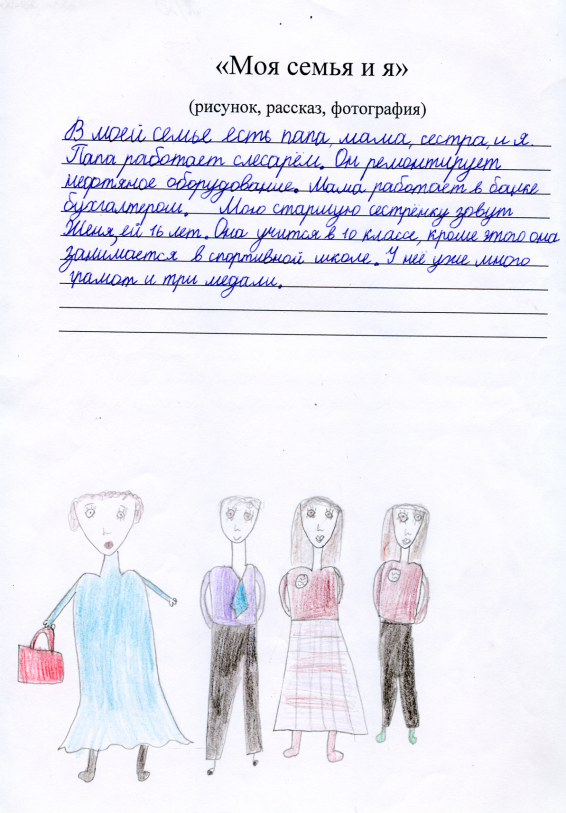 «Моя семья и я»
(рисунок, рассказ, фотография)
В моей семье есть папа, мама, сестра, и я.
Папа работает слесарём. Он ремонтирует
нефтяное оборудование. Мама работает в банке
бухгалтером. Мою старшую сестрёнку зовут
Женя, ей 16 лет. Она учится в 10 классе, кроме этого она
занимается в спортивной школе. У неё уже много
грамот и три медали.